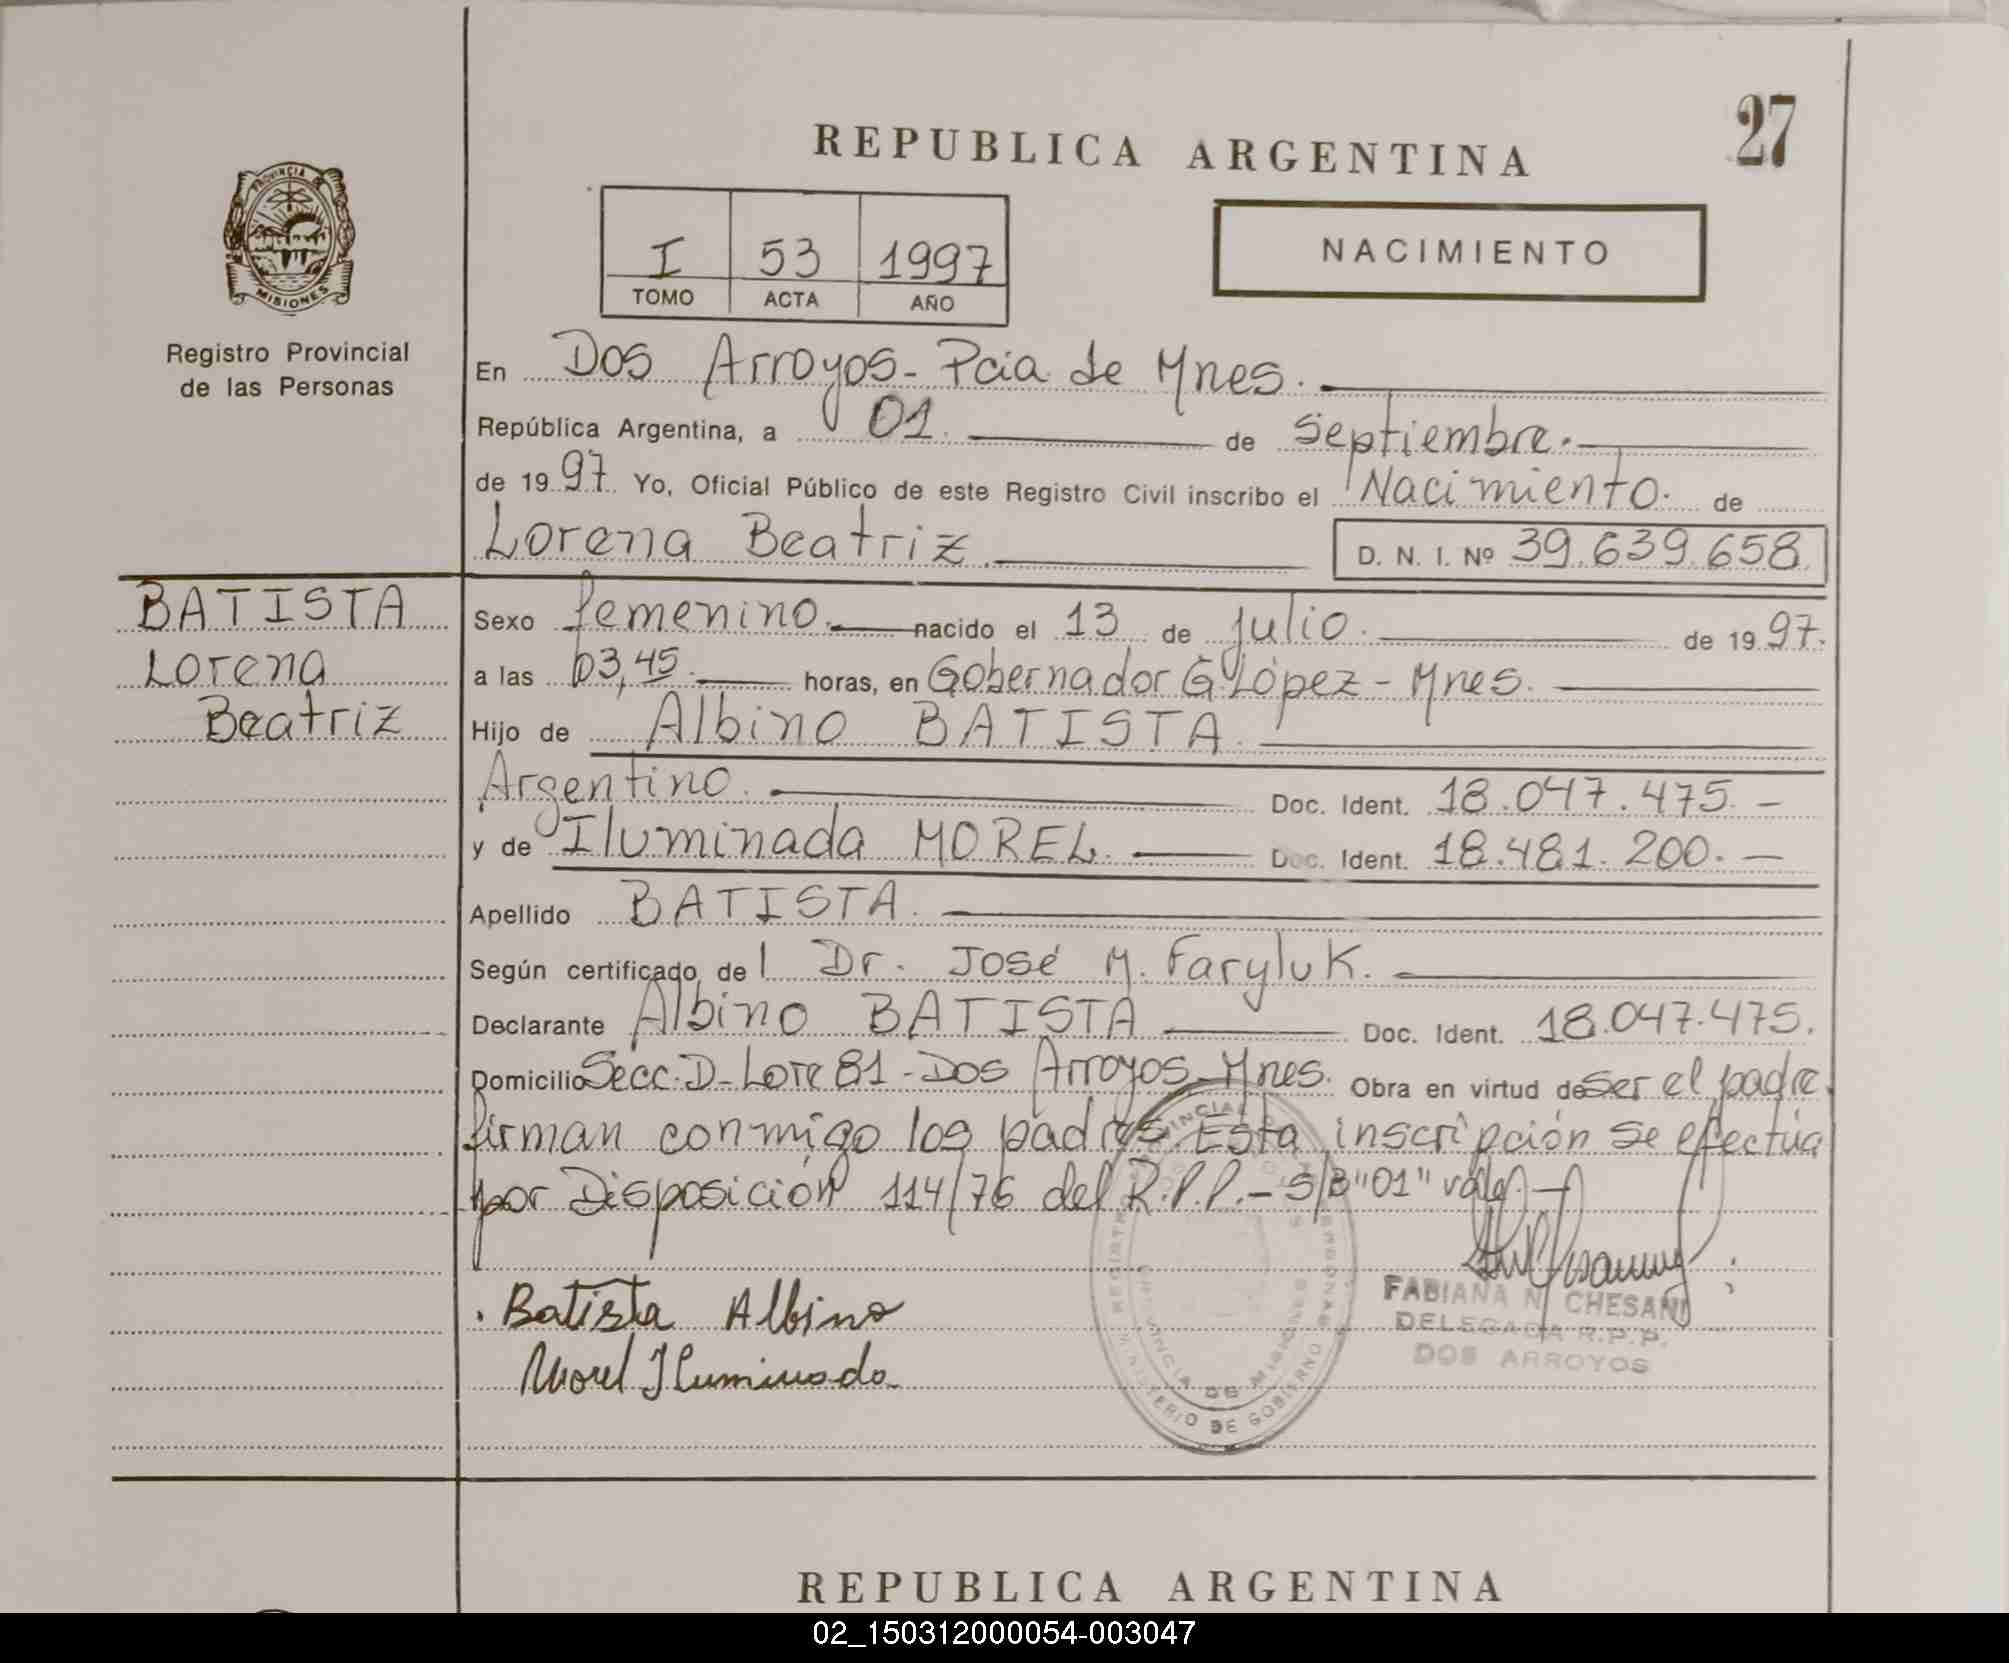 27
REPUBLICA ARGENTINA
PROVINCIA DE
MISIONES
Registro Provincial
de las Personas
I 53 1997
TOMO ACTA AÑO
NACIMIENTO
En Dos Arroyos - Pcia de Mnes.
República Argentina, a 01. de Septiembre.
de 1997. Yo, Oficial Público de este Registro Civil inscribo el Nacimiento. de
Lorena Beatriz. D. N. I. Nº 39.639.658.
BATISTA
Lorena
Beatriz
Sexo femenino. nacido el 13 de julio. de 1997.
a las 03,45. horas, en Gobernador G. López - Mnes.
Hijo de Albino BATISTA.
Argentino. Doc. Ident. 18.047.475. -
y de Iluminada MOREL. Doc. Ident. 18.481.200. -
Apellido BATISTA.
Según certificado del Dr. José M. Faryluk.
Declarante Albino BATISTA Doc. Ident. 18.047.475.
Domicilio Secc. D - Lote 81 - Dos Arroyos - Mnes. Obra en virtud de ser el padre.
firman conmigo los padres. Esta inscripción se efectúa
por Disposición 114/76 del R.P.P. - S/B "01" vale. -
Batista Albino
Morel Iluminada
REGISTRO PROVINCIAL DE LAS PERSONAS
PROVINCIA DE MISIONES
MINISTERIO DE GOBIERNO
FABIANA N. CHESANI
DELEGADA R.P.P.
DOS ARROYOS
REPUBLICA ARGENTINA
02_150312000054-003047